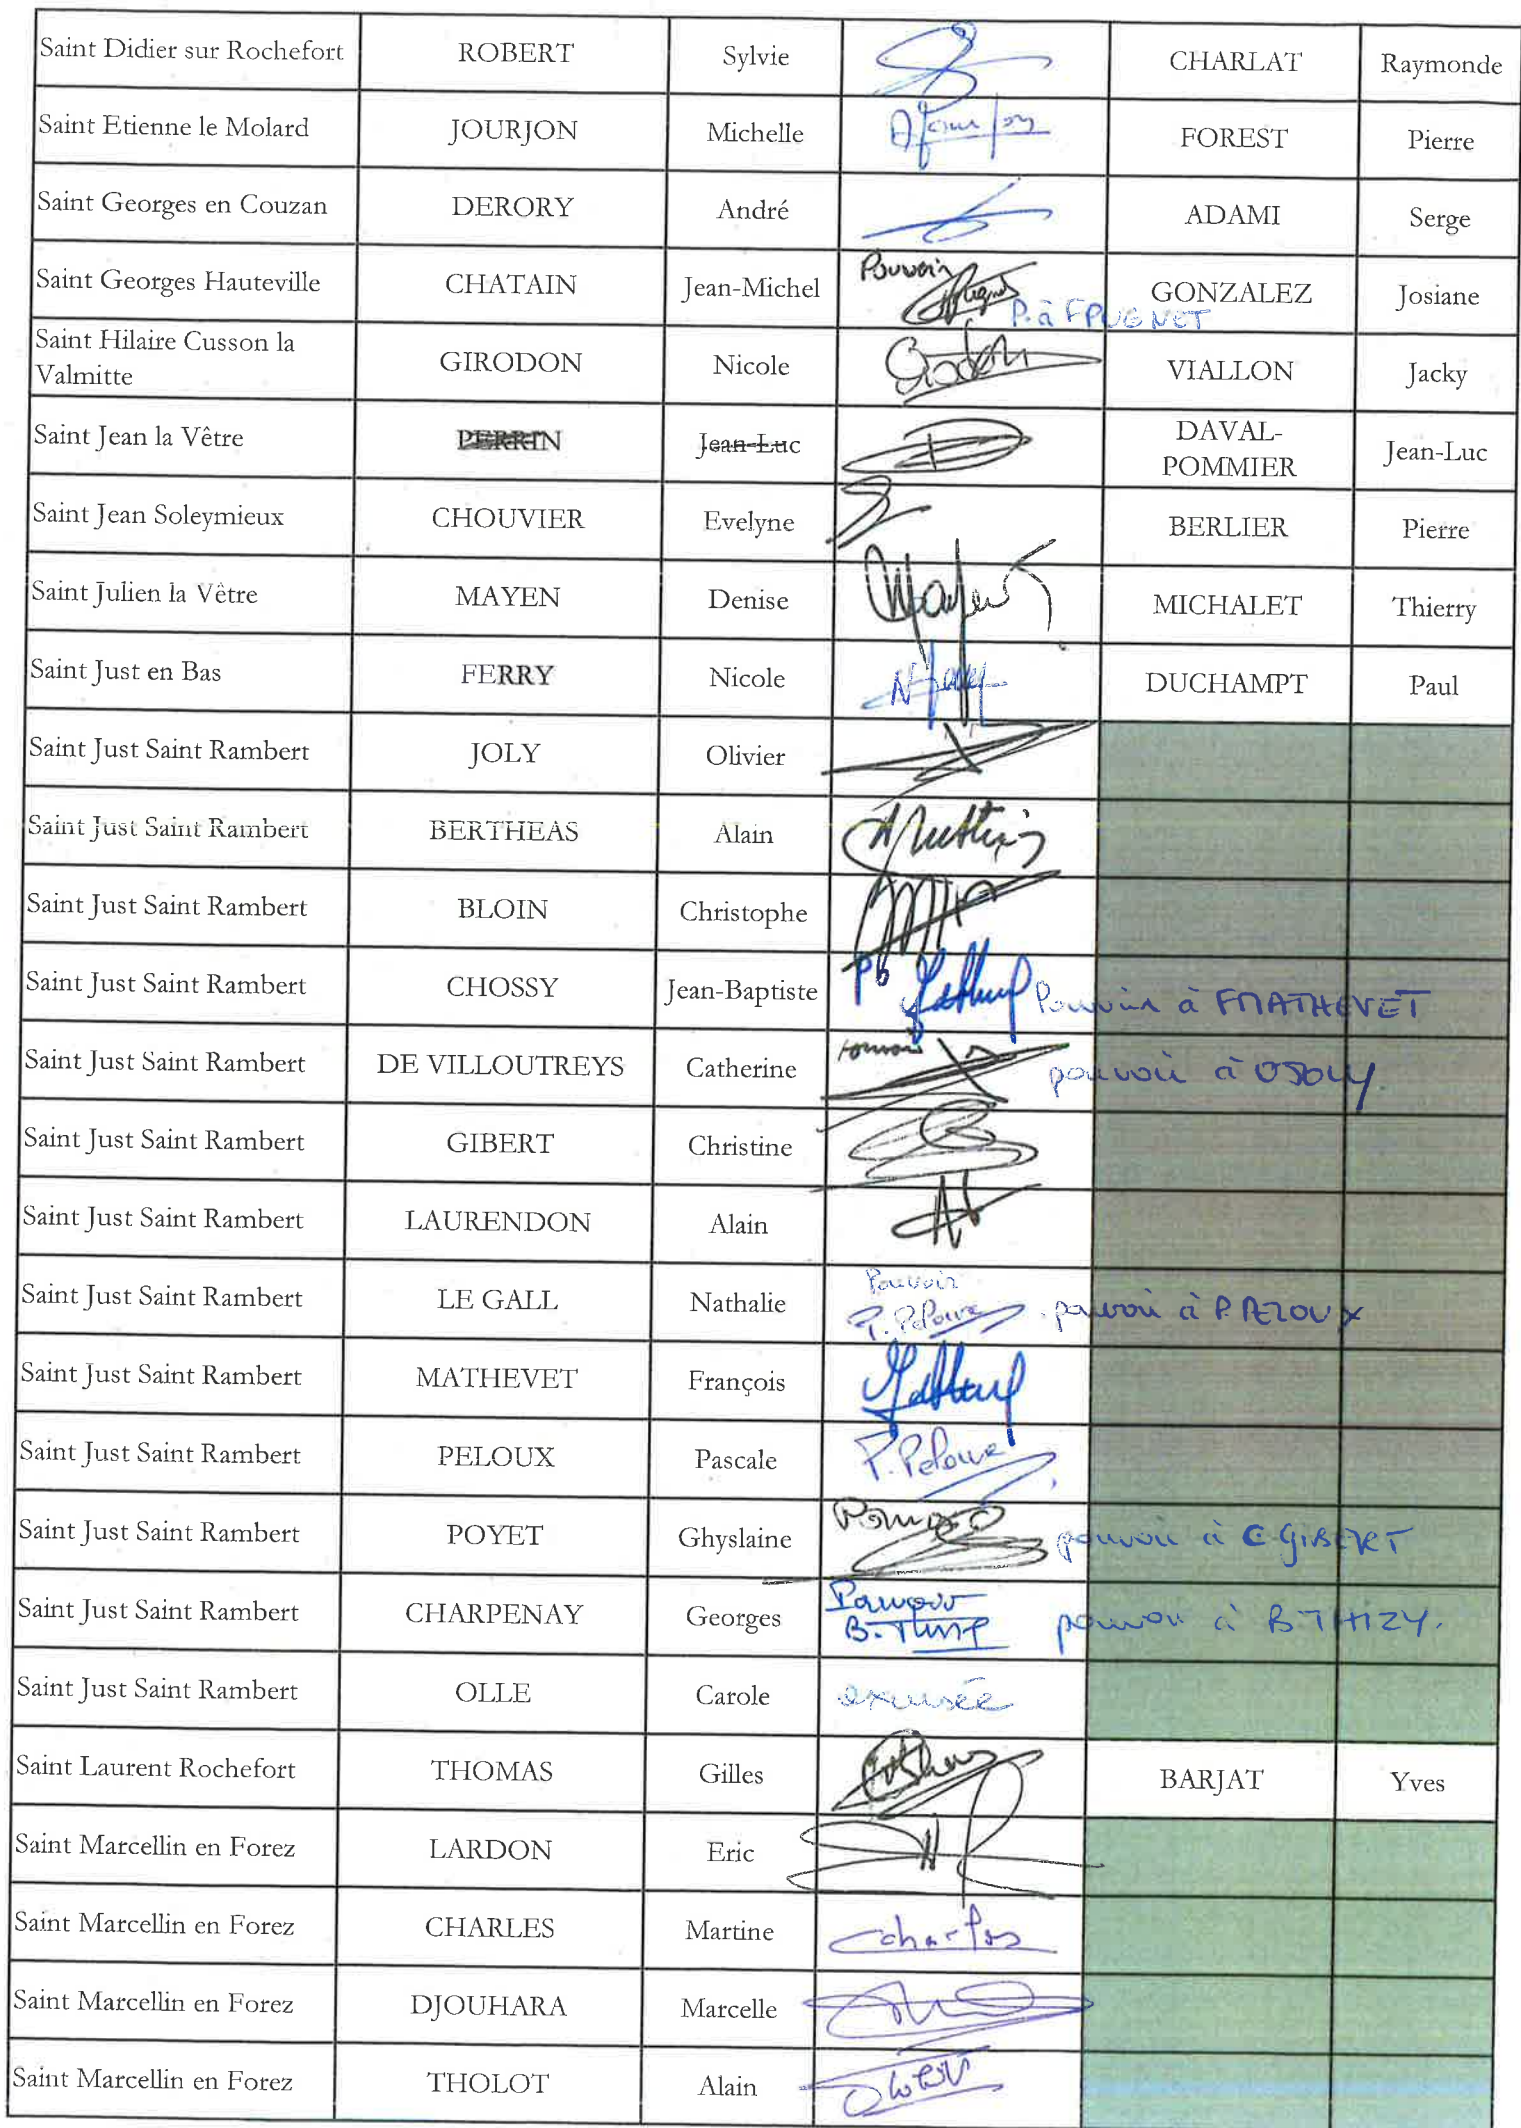 Saint Didier sur Rochefort ROBERT Sylvie CHARLAT Raymonde
Saint Etienne le Molard JOURJON Michelle FOREST Pierre
Saint Georges en Couzan DERORY André ADAMI Serge
Saint Georges Hauteville CHATAIN Jean-Michel Pouvoir P. à F PUGNET GONZALEZ Josiane
Saint Hilaire Cusson la
Valmitte GIRODON Nicole Girodon VIALLON Jacky
Saint Jean la Vêtre PERRIN Jean-Luc DAVAL-
POMMIER Jean-Luc
Saint Jean Soleymieux CHOUVIER Evelyne BERLIER Pierre
Saint Julien la Vêtre MAYEN Denise MICHALET Thierry
Saint Just en Bas FERRY Nicole DUCHAMPT Paul
Saint Just Saint Rambert JOLY Olivier
Saint Just Saint Rambert BERTHEAS Alain
Saint Just Saint Rambert BLOIN Christophe
Saint Just Saint Rambert CHOSSY Jean-Baptiste Pouvoir à F MATHEVET
Saint Just Saint Rambert DE VILLOUTREYS Catherine pouvoir pouvoir à O JOLY
Saint Just Saint Rambert GIBERT Christine
Saint Just Saint Rambert LAURENDON Alain
Saint Just Saint Rambert LE GALL Nathalie Pouvoir
P. Peloux pouvoir à P. PELOUX
Saint Just Saint Rambert MATHEVET François
Saint Just Saint Rambert PELOUX Pascale P. Peloux
Saint Just Saint Rambert POYET Ghyslaine Pouvoir pouvoir à C GIBERT
Saint Just Saint Rambert CHARPENAY Georges Pouvoir
B. Thizy pouvoir à B THIZY.
Saint Just Saint Rambert OLLE Carole excusée
Saint Laurent Rochefort THOMAS Gilles BARJAT Yves
Saint Marcellin en Forez LARDON Eric
Saint Marcellin en Forez CHARLES Martine Charles
Saint Marcellin en Forez DJOUHARA Marcelle
Saint Marcellin en Forez THOLOT Alain